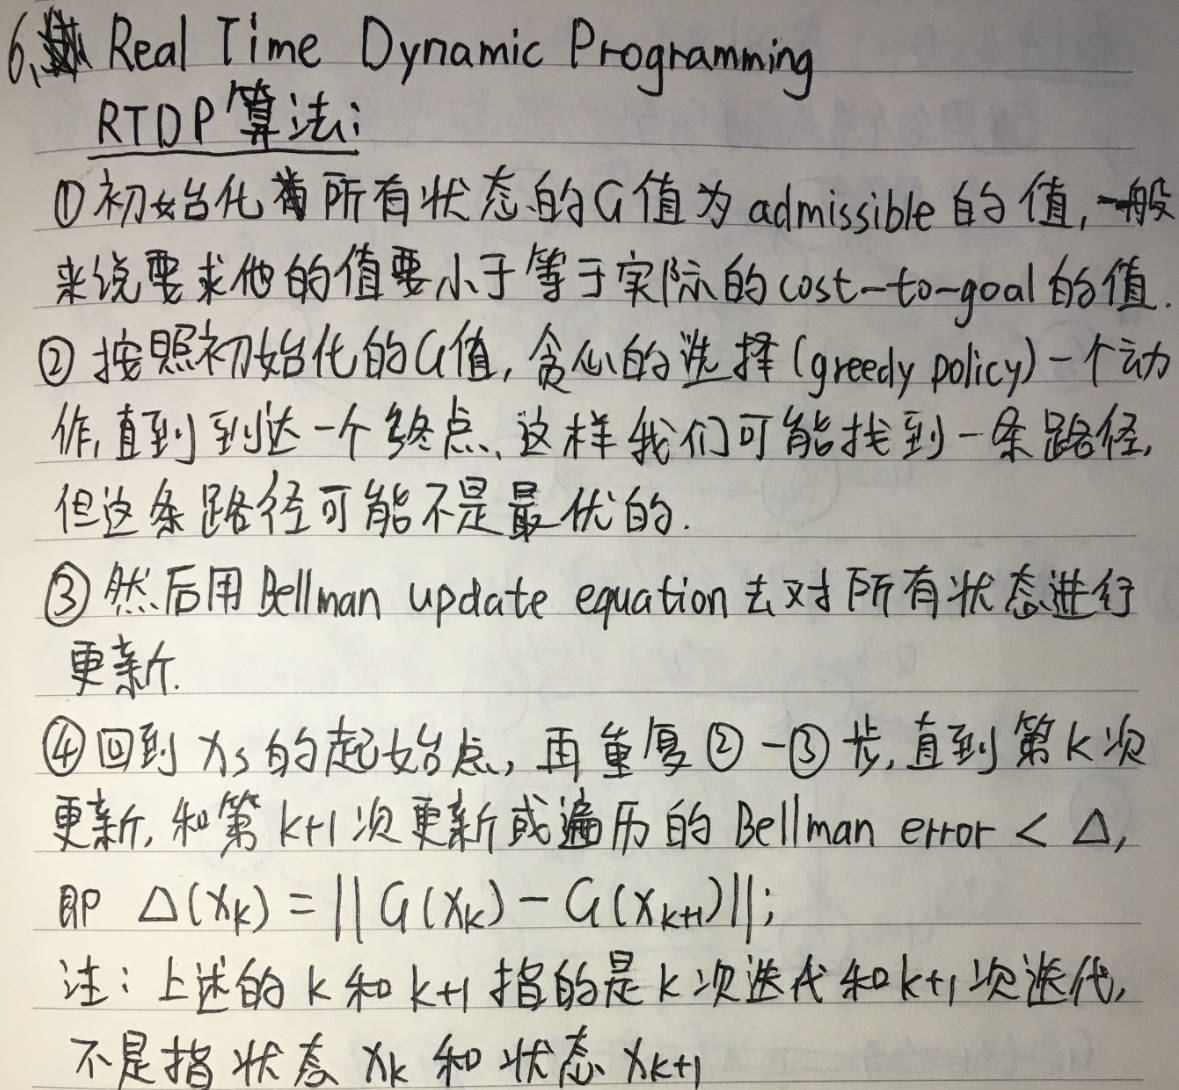 6. Real Time Dynamic Programming
RTDP算法:
①初始化所有状态的G值为admissible的值,一般
来说要求他的值要小于等于实际的cost-to-goal的值.
②按照初始化的G值,贪心的选择(greedy policy)一个动
作,直到到达一个终点、这样我们可能找到一条路径,
但这条路径可能不是最优的.
③然后用Bellman update equation去对所有状态进行
更新.
④回到Xs的起始点,再重复②-③步,直到第K次
更新,和第k+1次更新或遍历的Bellman error < Δ,
即 Δ(Xk) = ||G(Xk) - G(Xk+1)||;
注:上述的k和k+1指的是k次迭代和k+1次迭代,
不是指状态Xk和状态Xk+1